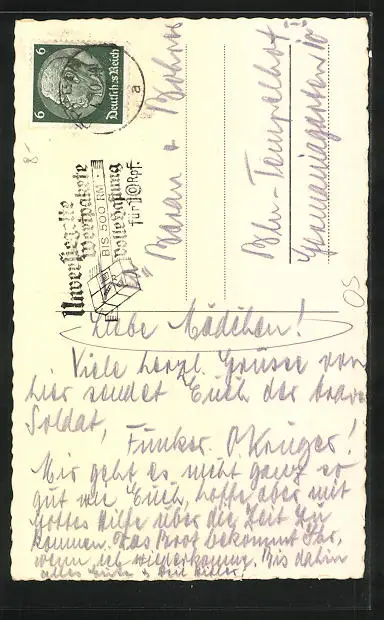 6 6
Deutsches Reich
a
Unversiegelte
Wertpakete
BIS 500 RM
volle Haftung
für 10 Rpf.
Baran + Bohner
Bln-Tempelhof
Germaniagarten 10
8-
OS
Liebe Mädchen!
Viele herzl. Grüsse von
hier sendet Euch der brave
Soldat,
Funker. O. Krüger!
Mir geht es nicht ganz so
gut wie Euch, hoffe aber mit
Gottes Hilfe über die Zeit zu
kommen. Das Boot bekommt Ihr,
wenn ich wiederkomme. Bis dahin
alles Gute + Heil Hitler!